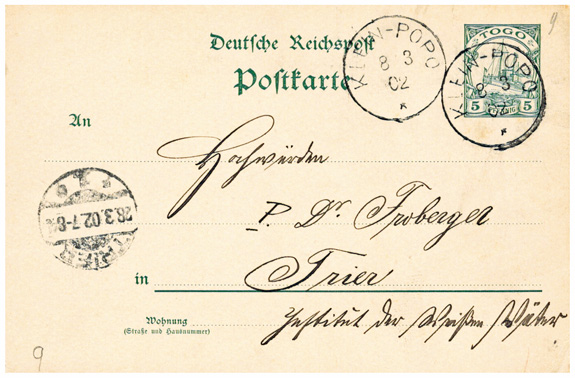 9
TOGO
5 PFENNIG 5
KLEIN-POPO
8 3
02
*
KLEIN-POPO
8 3
02
*
Deutsche Reichspost
Postkarte
An
Hochwürden
P. Dr. Froberger
in Trier
Wohnung
(Straße und Hausnummer)
Institut der Weißen Väter
TRIER
* 1 *
28.3.02.7-8
9